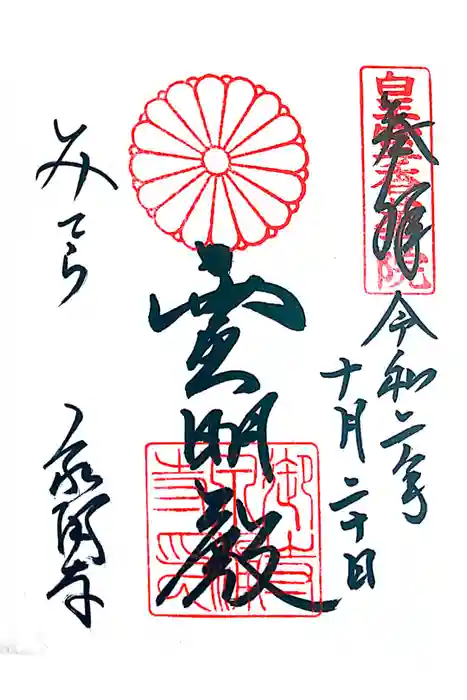 皇室香華院
奉拝
令和二年
十月二十日
霊明殿
みてら
泉涌寺